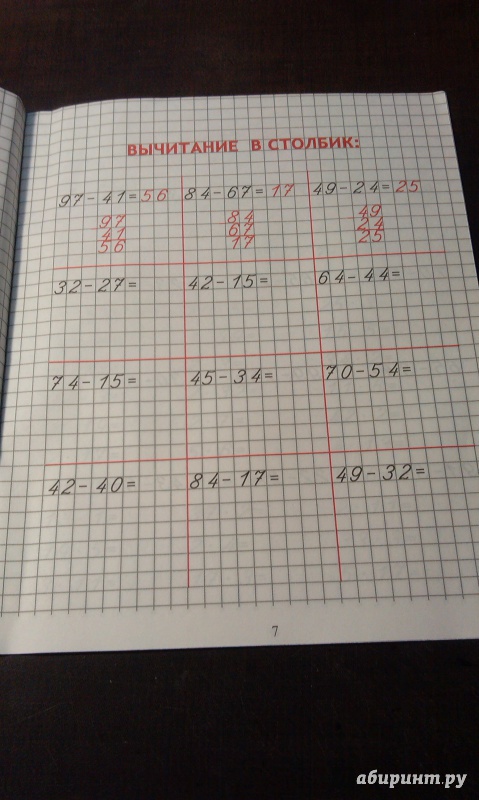 ВЫЧИТАНИЕ В СТОЛБИК:
97-41=56 84-67=17 49-24=25
97 84 49
41 67 24
56 17 25
32-27= 42-15= 64-44=
74-15= 45-34= 70-54=
42-40= 84-17= 49-32=
7
абиринт.ру